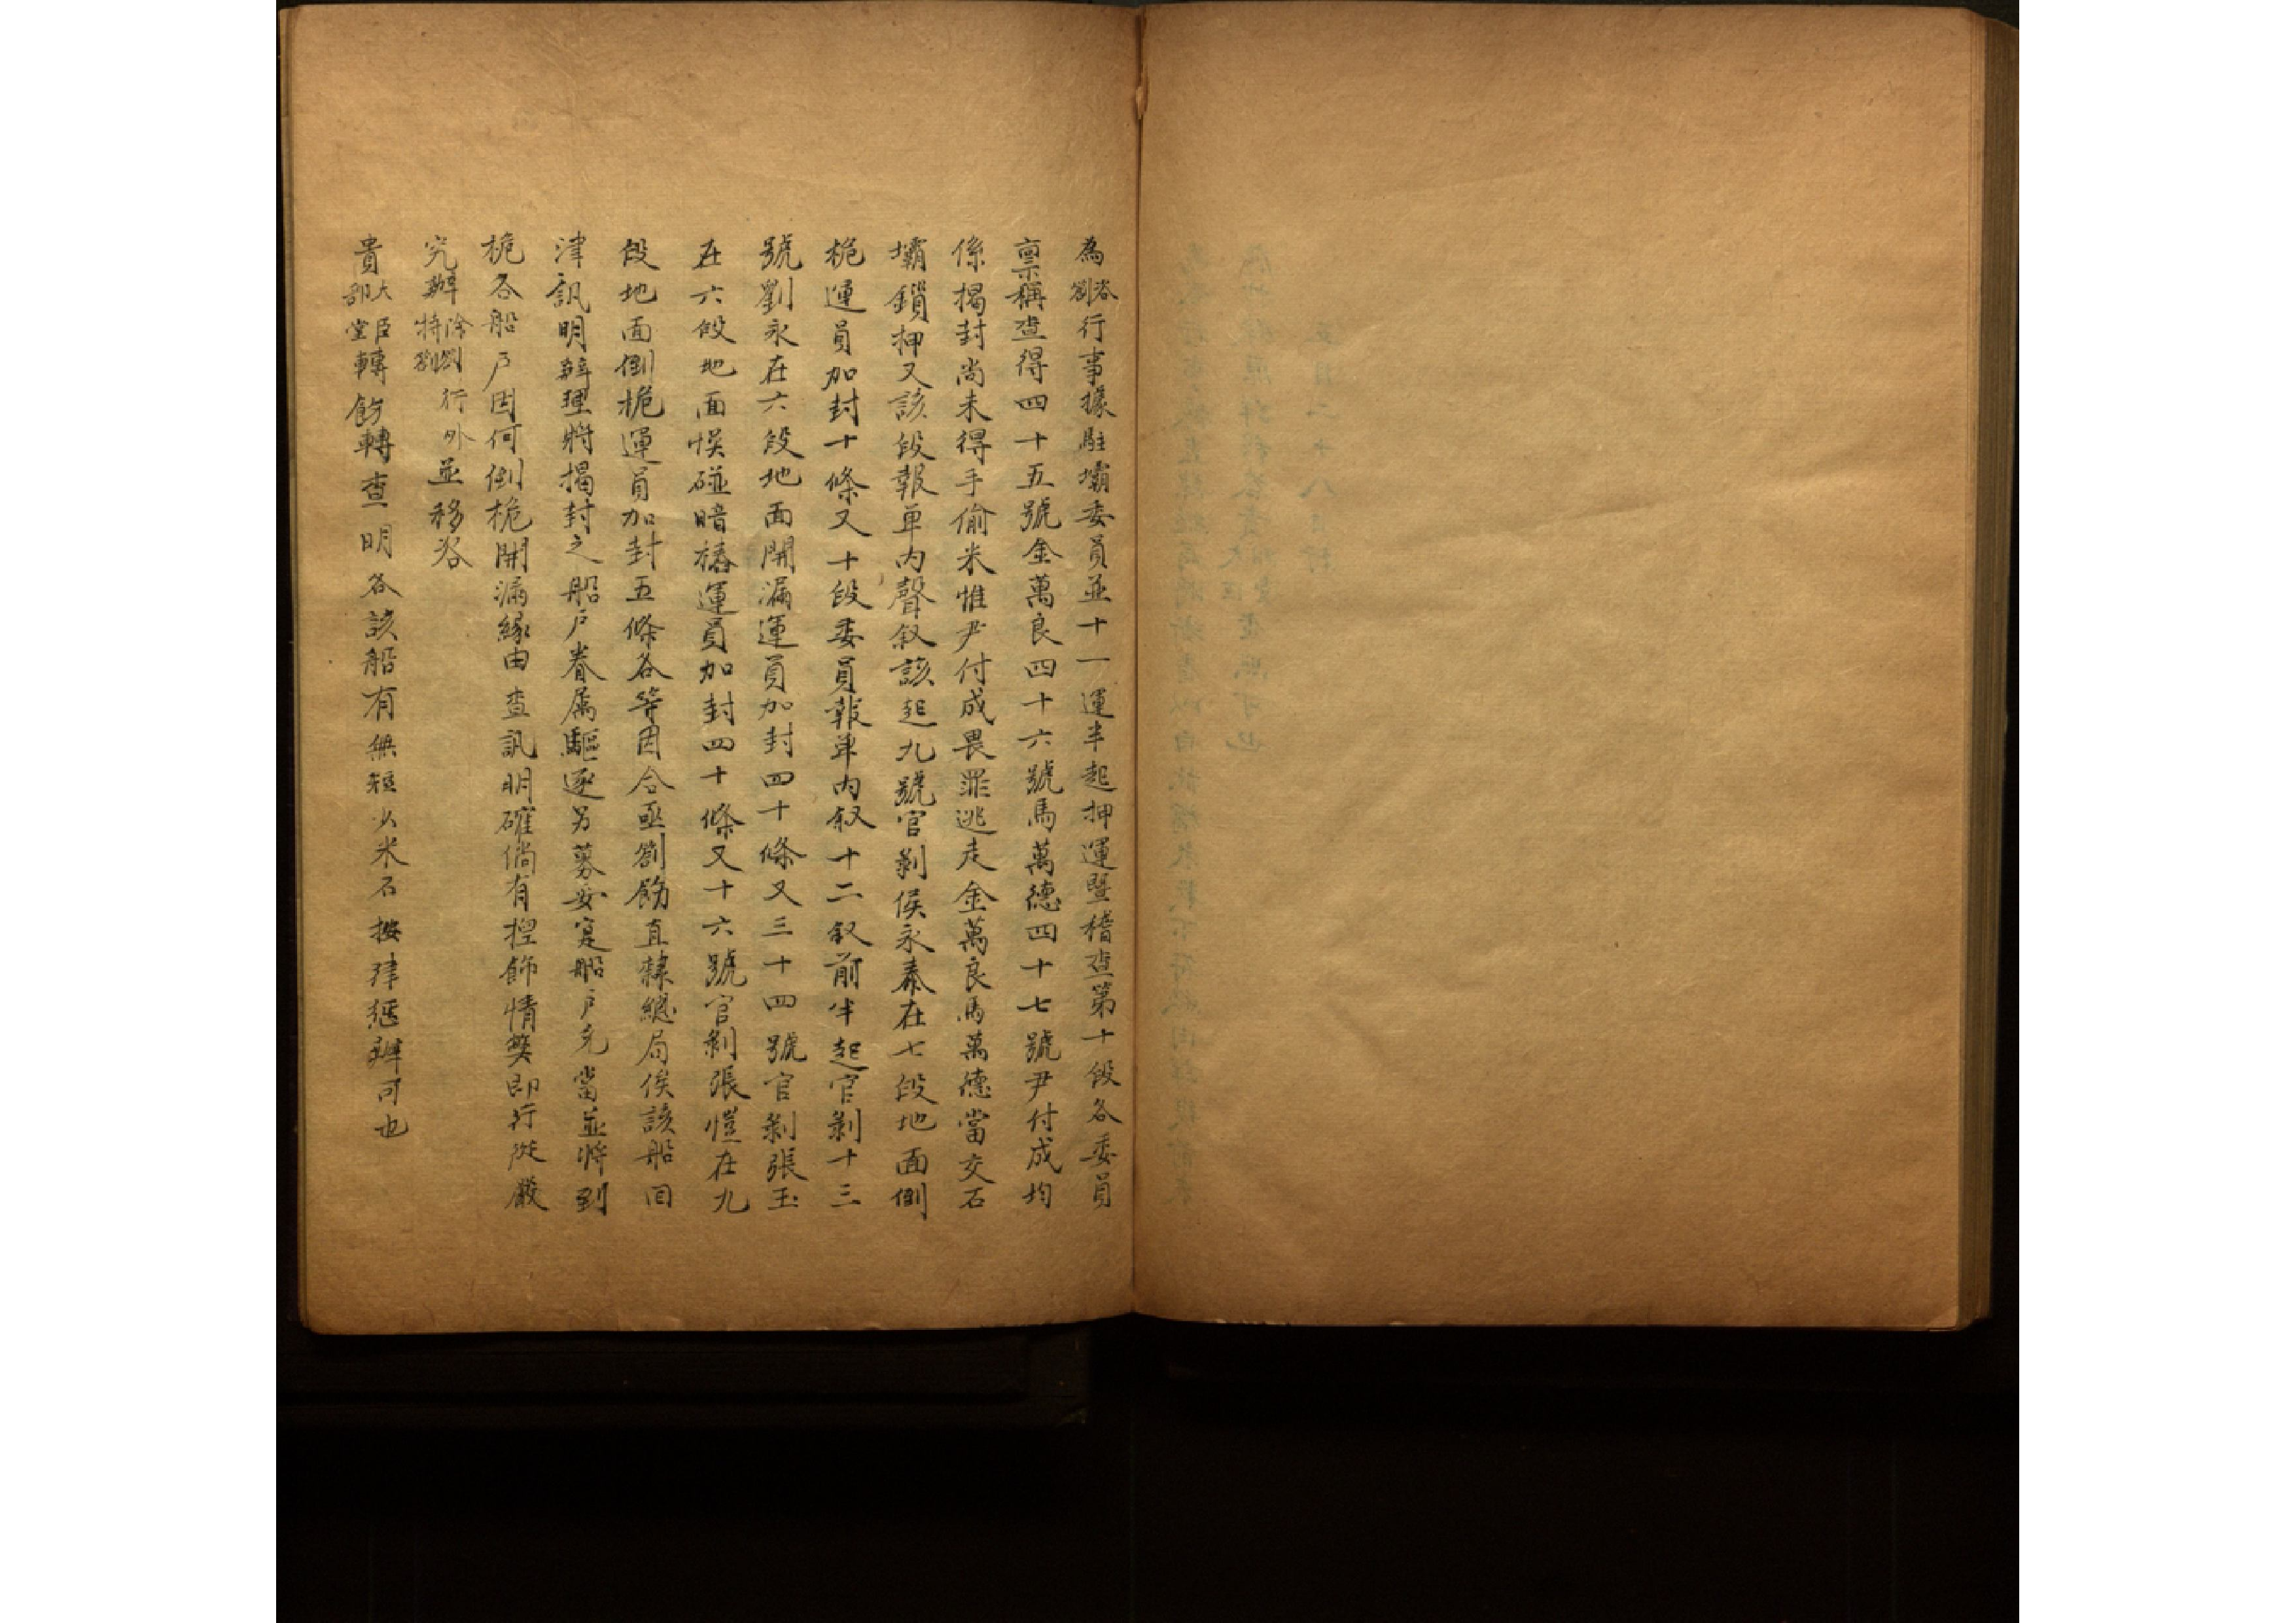 為咨劄行事據駐壩委員並十一運半起押運暨稽查第十段各委員
稟稱查得四十五號金萬良四十六號馬萬德四十七號尹付成均
係揭封尚未得手偷米惟尹付成畏罪逃走金萬良馬萬德當交石
壩鎖押又該段報单內聲叙該起九號官剝侯永泰在七段地面倒
桅運員加封十條又十段委員報单內叙十二叙前半起官剝十三
號劉永在六段地面開漏運員加封四十條又三十四號官剝張玉
在六段地面悞碰暗樁運員加封四十條又十六號官剝張愷在九
段地面倒桅運員加封五條各等因合亟劄飭直隸總局俟該船回
津訊明辦理將揭封之船戶眷属驅逐另募妥寔船戶充當並將到
桅各船戶因何倒桅開漏緣由查訊明確倘有捏飾情獘即行從嚴
究辦除劄特劄行外並移咨
貴大臣部堂轉飭轉查明各該船有無短少米石按律懲辦可也